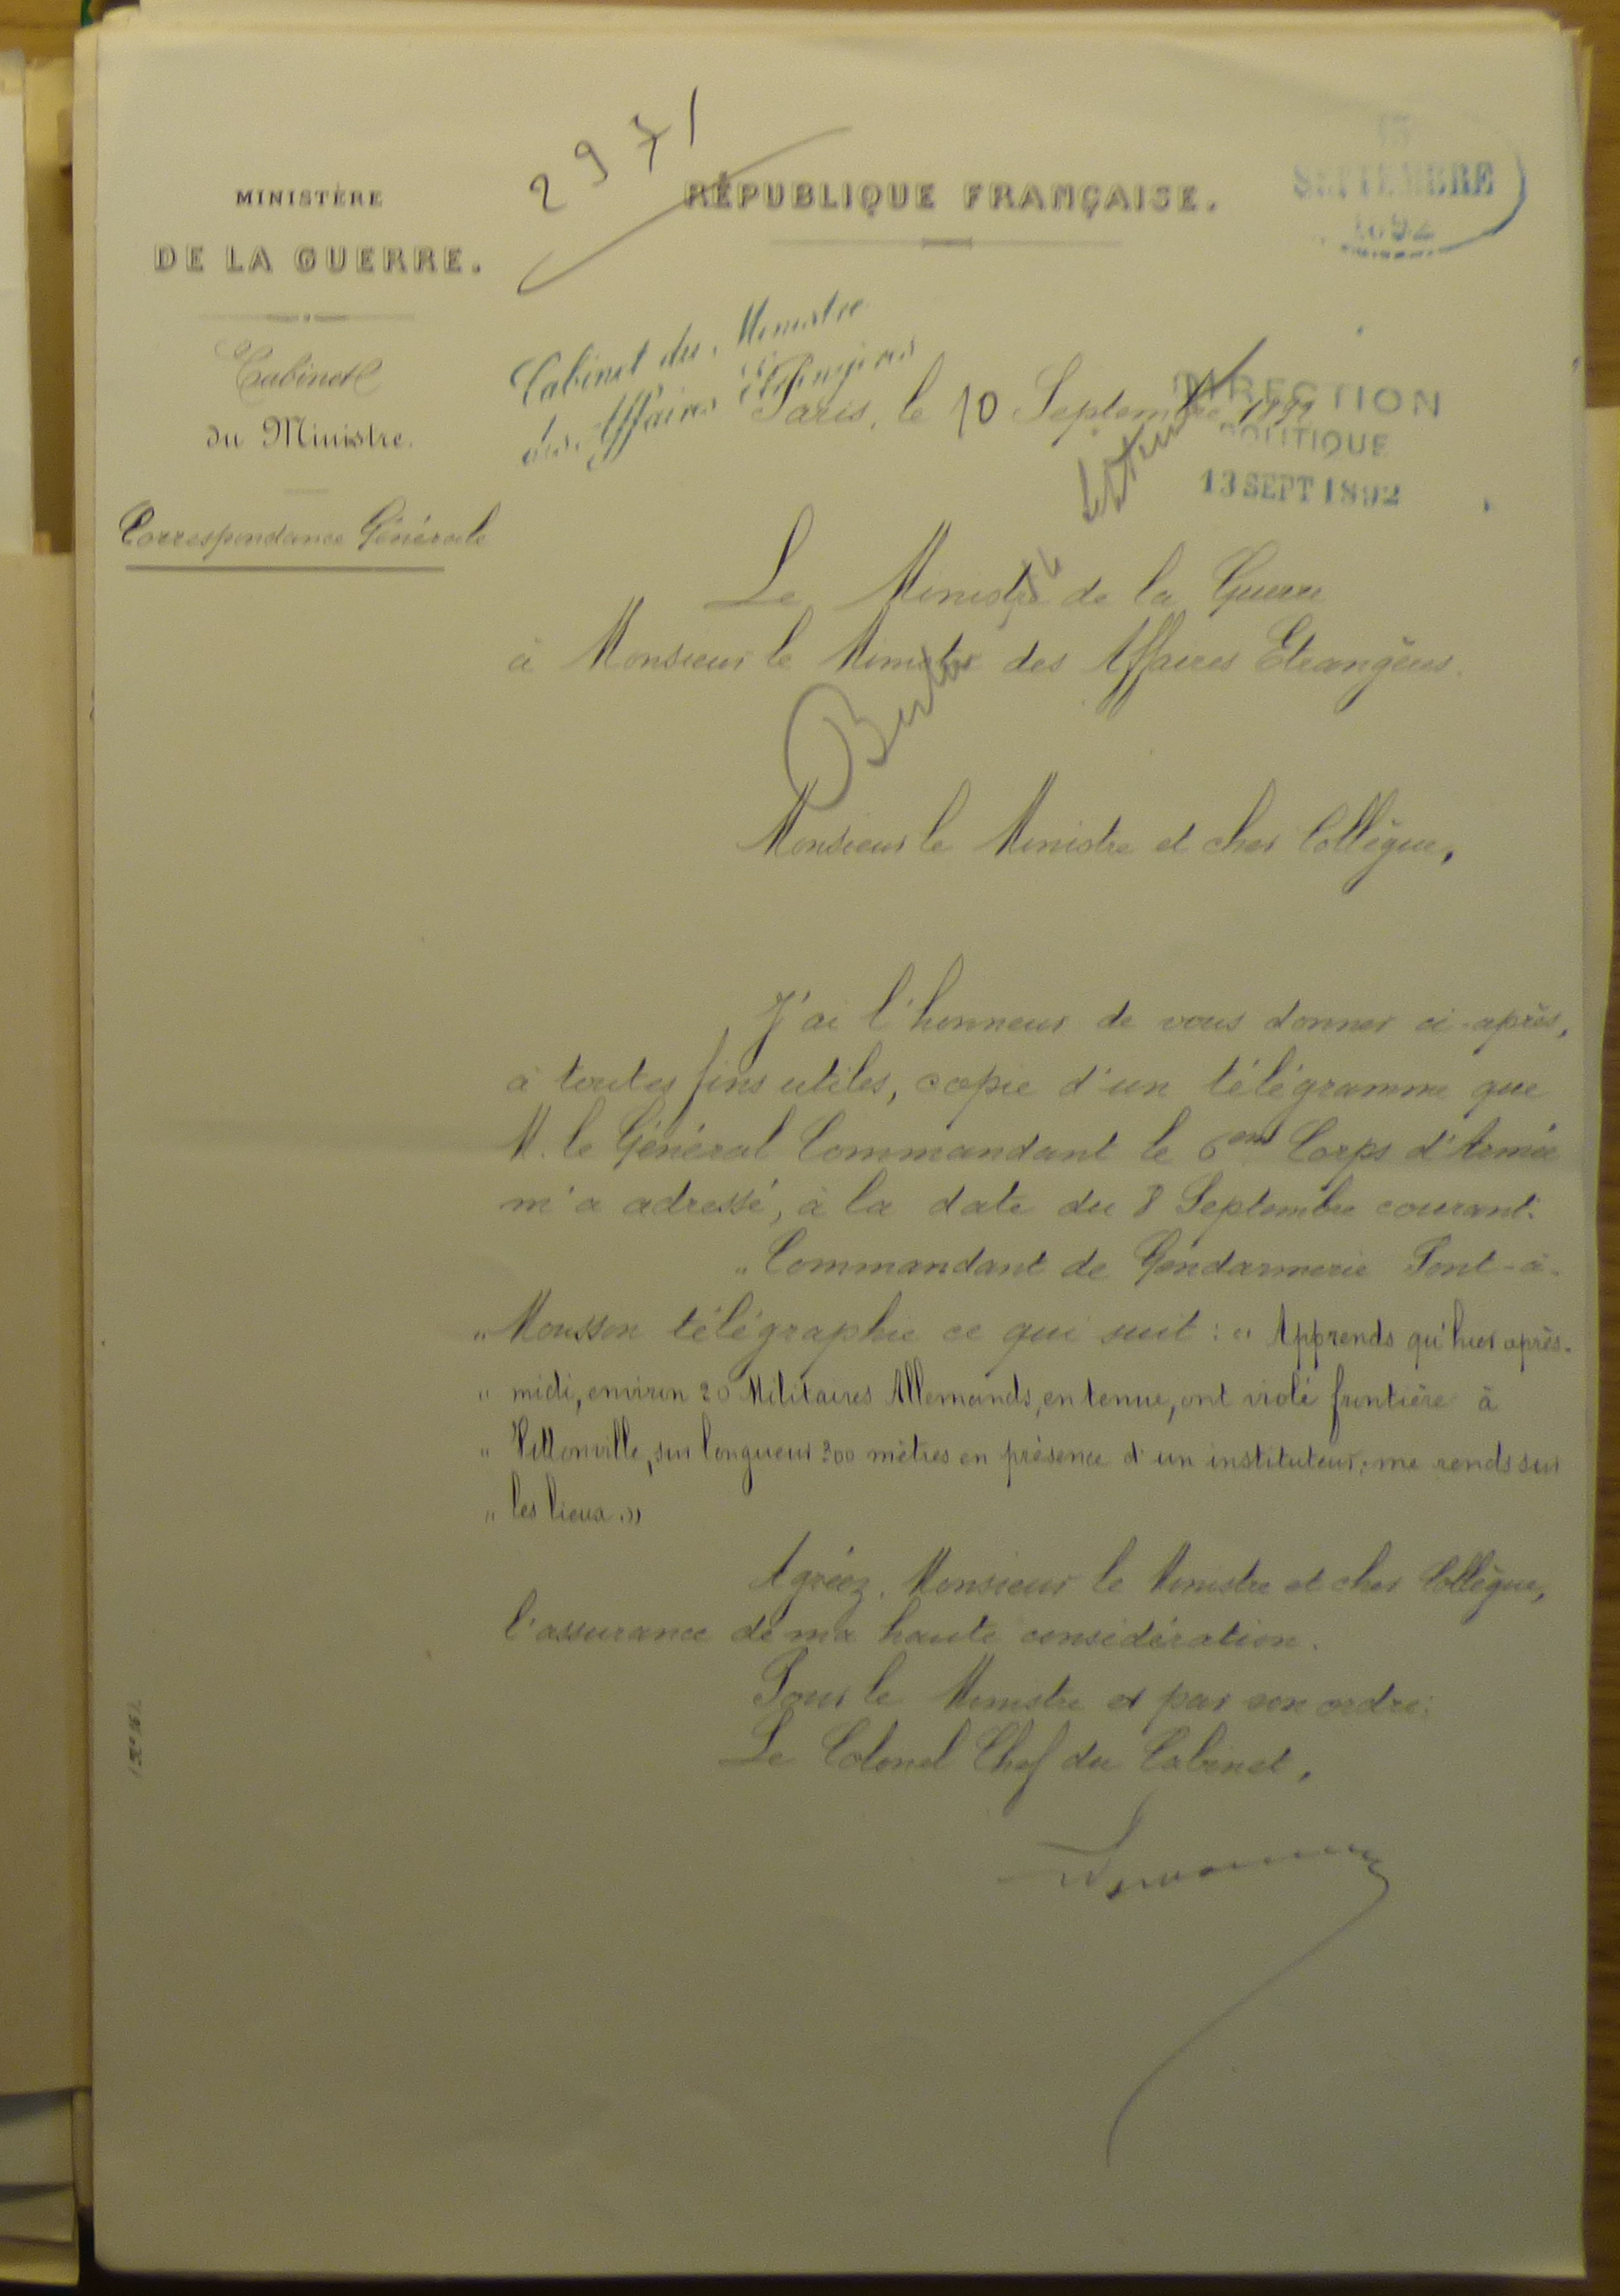 2971
MINISTÈRE
DE LA GUERRE.
RÉPUBLIQUE FRANÇAISE.
SEPTEMBRE
1892
Cabinet
du Ministre.
Correspondance Générale
Cabinet du Ministre
des Affaires Etrangères
Paris, le 10 Septembre 1892
DIRECTION
POLITIQUE
13 SEPT 1892
Le Ministre de la Guerre
à Monsieur le Ministre des Affaires Etrangères.
Monsieur le Ministre et cher Collègue,
J'ai l'honneur de vous donner ci-après,
à toutes fins utiles, copie d'un télégramme que
M. le Général Commandant le 6eme Corps d'Armée
m'a adressé, à la date du 8 Septembre courant:
" Commandant de Gendarmerie Pont-à-
" Mousson télégraphie ce qui suit : " Apprends qu'hier après-
" midi, environ 20 Militaires Allemands, en tenue, ont violé frontière à
" Vittonville, sur longueur 300 mètres en présence d'un instituteur; me rends sur
" les lieux. "
Agréez, Monsieur le Ministre et cher Collègue,
l'assurance de ma haute considération.
Pour le Ministre et par son ordre:
Le Colonel Chef du Cabinet,